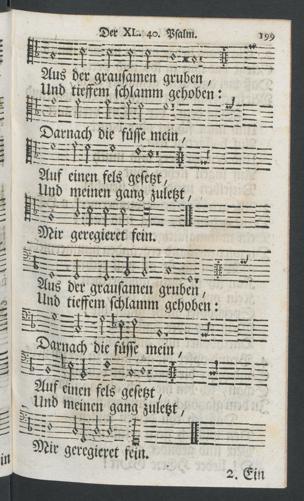 Der XL. 40. Psalm. 199
Aus der grausamen gruben,
Und tieffem schlamm gehoben:
Darnach die füsse mein,
Auf einen fels gesetzt,
Und meinen gang zuletzt,
Mir geregieret fein.
Aus der grausamen gruben,
Und tieffem schlamm gehoben:
Darnach die füsse mein,
Auf einen fels gesetzt,
Und meinen gang zuletzt,
Mir geregieret fein.
2. Ein